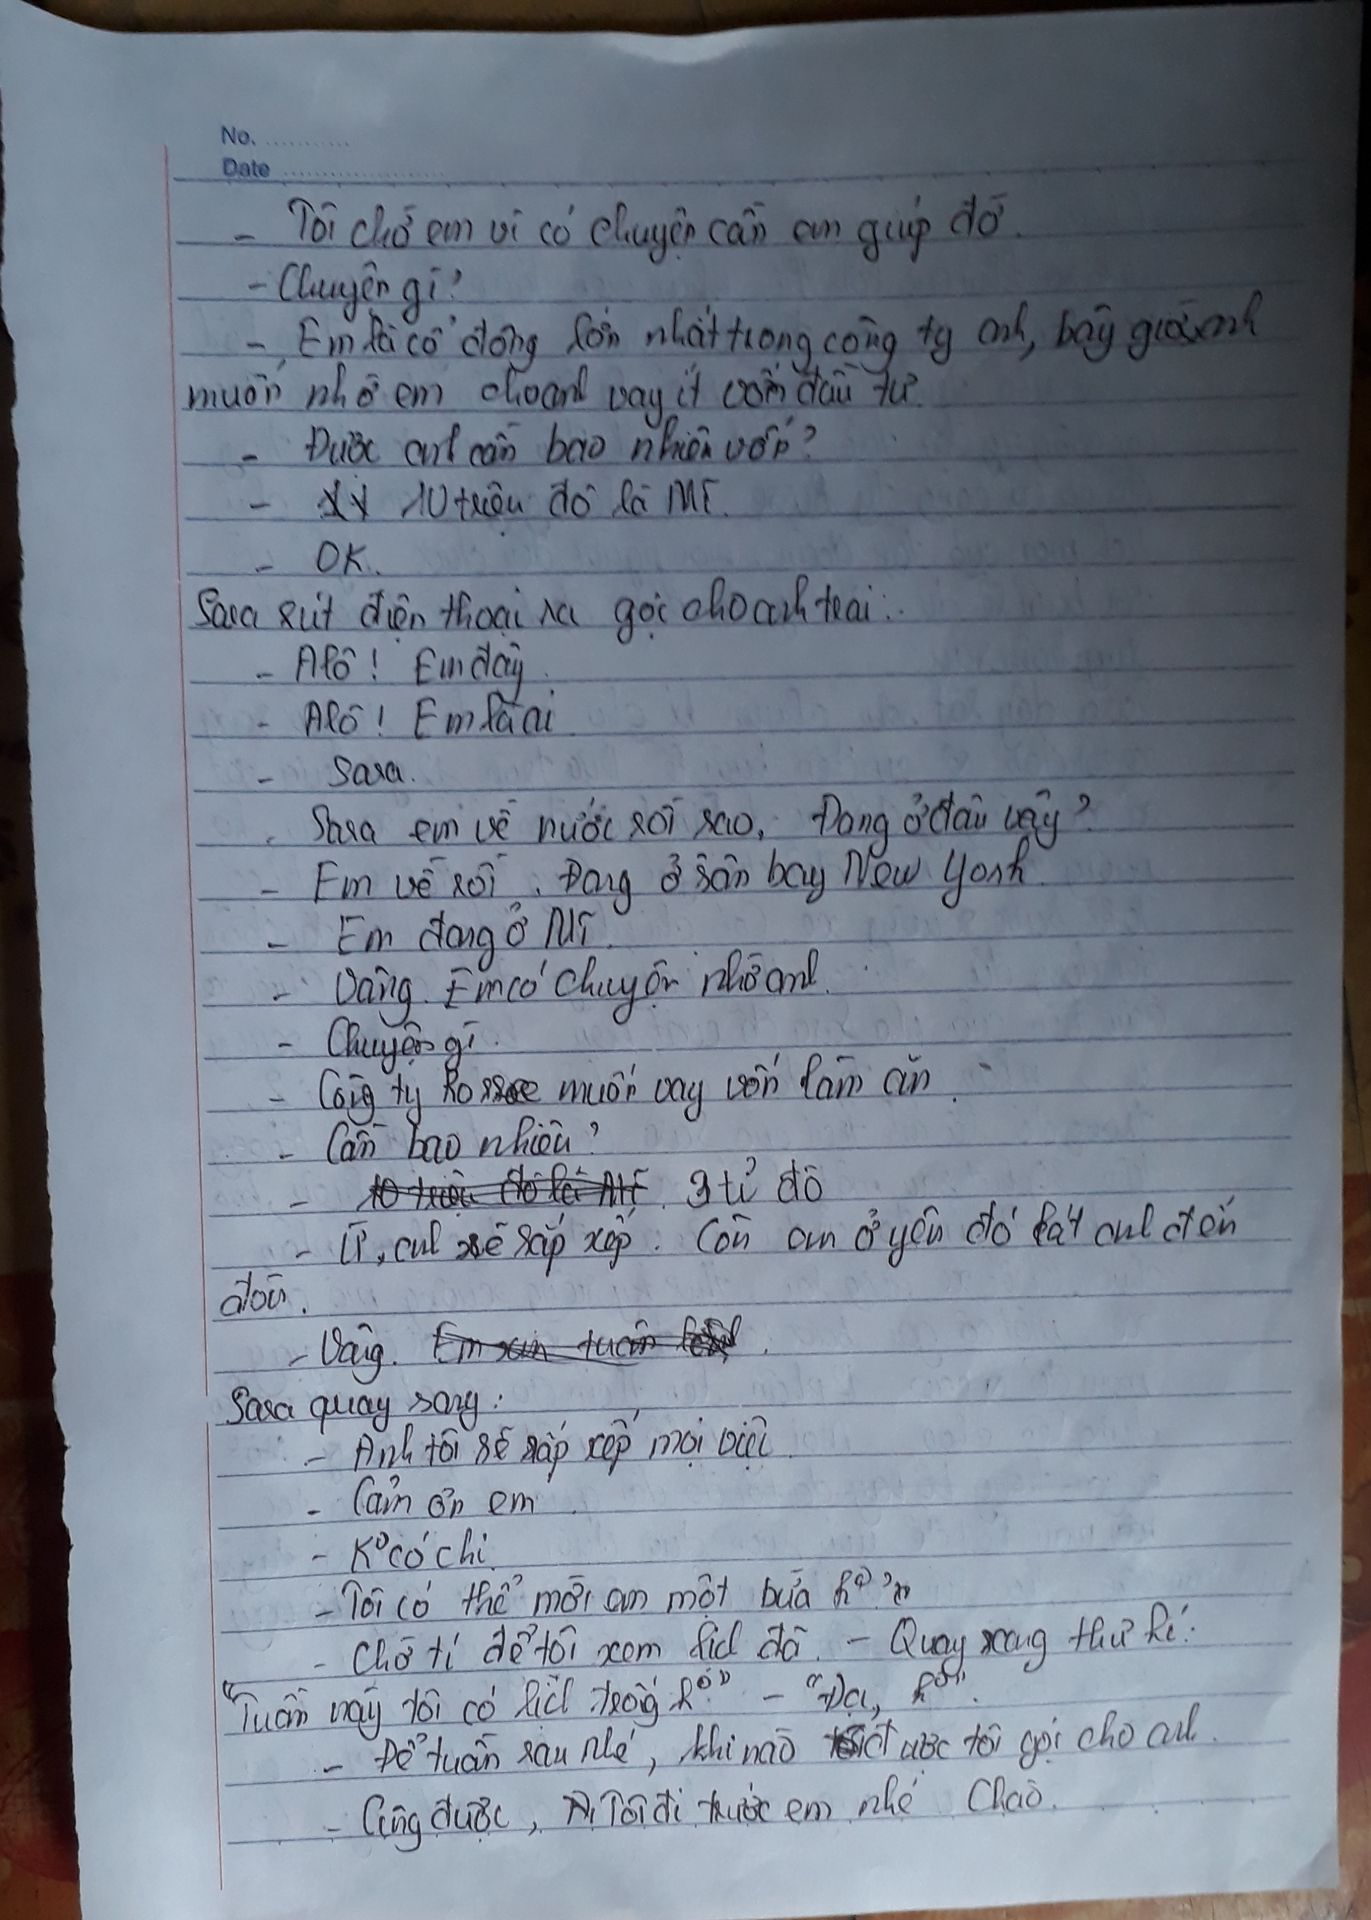 No. ............
Date ........................
- Tôi chờ em vì có chuyện cần em giúp đỡ.
- Chuyện gì?
- Em là cổ đông lớn nhất trong công ty anh, bây giờ anh
muốn nhờ em cho anh vay ít vốn đầu tư.
- Được anh cần bao nhiêu vốn?
- 10 triệu đô la Mĩ.
- OK.
Sara rút điện thoại ra gọi cho anh trai:
- Alô! Em đây.
- Alô! Em là ai
- Sara.
- Sara em về nước rồi sao, Đang ở đâu vậy?
- Em về rồi. Đang ở sân bay New Yonk
- Em đang ở Mĩ.
- Vâng. Em có chuyện nhờ anh.
- Chuyện gì.
- Công ty muốn vay vốn làm ăn.
- Cần bao nhiêu?
- 3 tỉ đô
- Ừ, anh sẽ sắp xếp. Còn em ở yên đó lát anh đến
đón.
- Vâng.
Sara quay sang:
- Anh tôi sẽ sắp xếp mọi việc
- Cảm ơn em.
- Kº có chi.
- Tôi có thể mời em một bữa kº?
- Chờ tí để tôi xem lịch đã. - Quay sang thư kí:
"Tuần này tôi có lịch trống kº?" - "Dạ, kº".
- Để tuần sau nhé, khi nào được tôi gọi cho anh.
- Cũng được, Tôi đi trước em nhé. Chào.